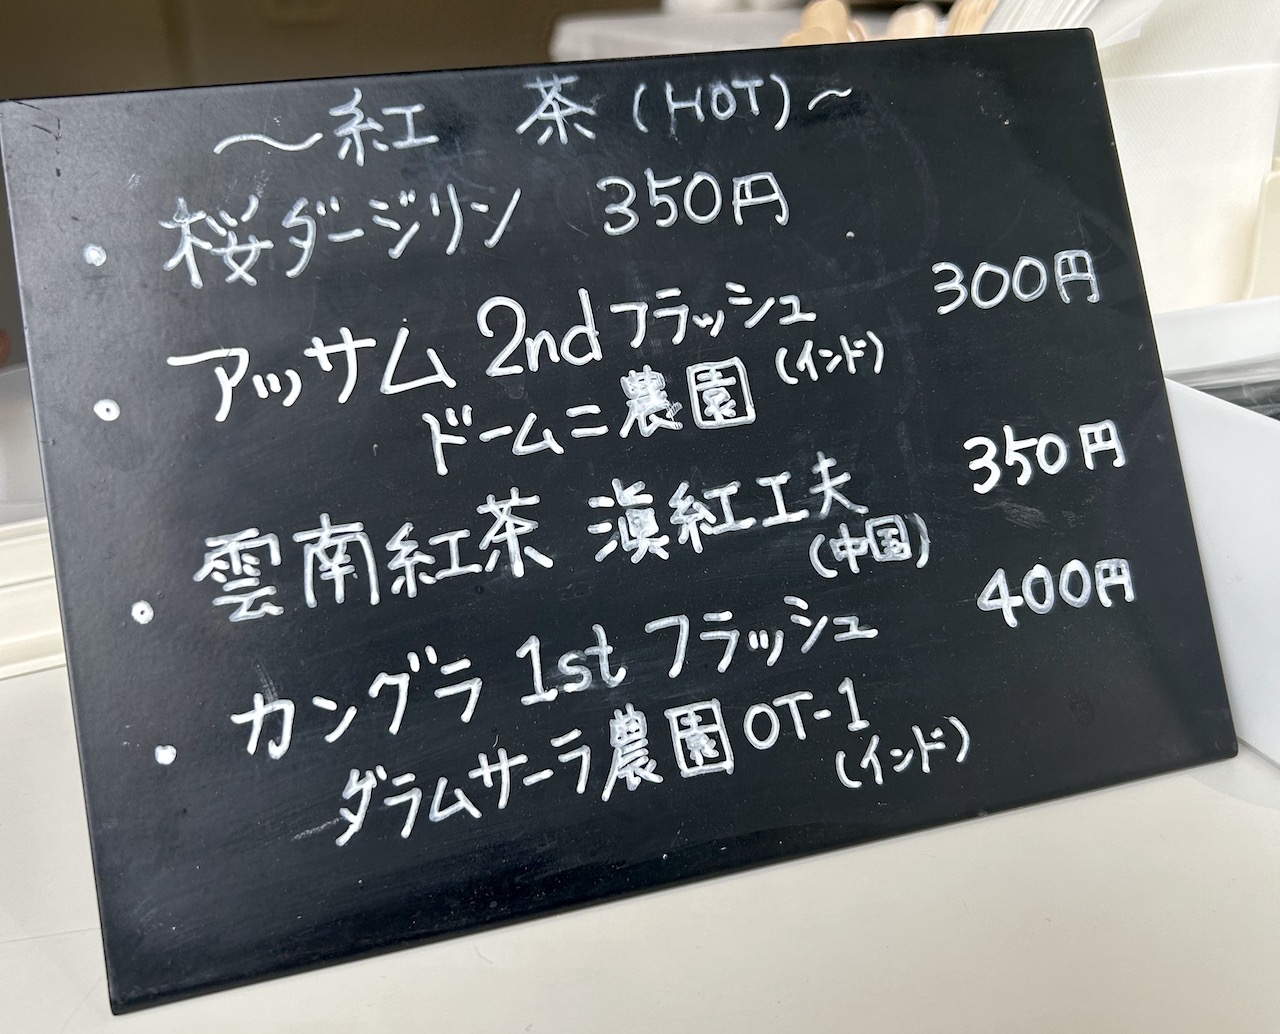 ～紅 茶(HOT)～
・桜ダージリン 350円
・アッサム 2ndフラッシュ 300円
ドームニ農園 (インド)
・雲南紅茶 滇紅工夫 350円
(中国)
・カングラ 1st フラッシュ 400円
ダラムサーラ農園 OT-1
(インド)